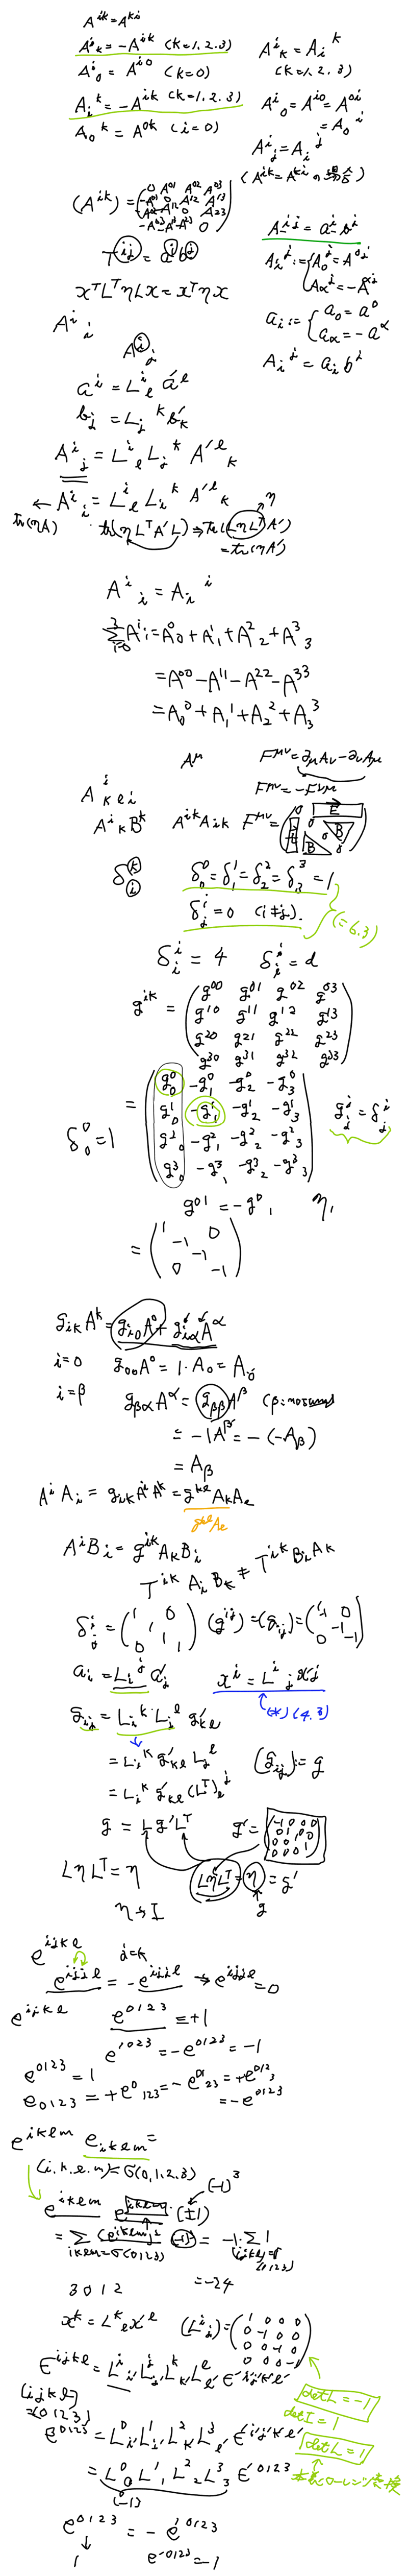 A^{ik} = A^{ki}
A^i_k = -A^{ik} (k=1,2,3)
A^i_0 = A^{i0} (k=0)
A_i^k = -A^{ik} (k=1,2,3)
A_0^k = A^{0k} (i=0)
A^i_k = A_i^k
(k=1,2,3)
A^i_0 = A^{i0} = A^{0i}
= A_0^i
A^i_j = A_i^j
(A^{ik} = A^{ki} の場合)
(A^{ik}) = ( 0 A^{01} A^{02} A^{03}
-A^{01} 0 A^{12} A^{13}
-A^{02} -A^{12} 0 A^{23}
-A^{03} -A^{13} -A^{23} 0 )
T^{ij} = a^i b^j
x^T L^T η L x = x^T η x
A^i_i
A^i_j
A^{ij} = a^i b^j
A_i^j := { A_0^j = A^{0j}
A_α^j = -A^{αj}
a_i := { a_0 = a^0
a_α = -a^α
A_i^j = a_i b^j
a^i = L^i_l a'^l
b_j = L_j^k b'_k
A^i_j = L^i_l L_j^k A'^l_k
A^i_i = L^i_l L_i^k A'^l_k
← tr(ηA) tr(η L^T A' L) ⇒ Tr(L η L^T A')
η
= tr(ηA')
A^i_i = A_i^i
Σ_{i=0}^3 A^i_i = A^0_0 + A^1_1 + A^2_2 + A^3_3
= A^{00} - A^{11} - A^{22} - A^{33}
= A_0^0 + A_1^1 + A_2^2 + A_3^3
A^μ F^{μν} = ∂_μ A_ν - ∂_ν A_μ
F^{μν} = -F^{νμ}
A^i_{kli}
A^i_k B^k A^{ik} A_{ik} F^{μν} = ( 0 E 0 B B 0 )
δ^k_i δ^0_0 = δ^1_1 = δ^2_2 = δ^3_3 = 1
δ^i_j = 0 (i≠j). (=6.3)
δ^i_i = 4 δ^i_i = d
g^{ik} = ( g^{00} g^{01} g^{02} g^{03}
g^{10} g^{11} g^{12} g^{13}
g^{20} g^{21} g^{22} g^{23}
g^{30} g^{31} g^{32} g^{33} )
= ( g^0_0 -g^0_1 -g^0_2 -g^0_3
g^1_0 -g^1_1 -g^1_2 -g^1_3
g^2_0 -g^2_1 -g^2_2 -g^2_3
g^3_0 -g^3_1 -g^3_2 -g^3_3 )
δ^0_0 = 1
g^i_j = δ^i_j
g^{01} = -g^0_1 η,
= ( 1 -1 0 -1 0 -1 )
g_{ik} A^k = g_{i0} A^0 + g_{iα} A^α
i=0 g_{00} A^0 = 1・A_0 = A_0
i=β g_{βα} A^α = g_{ββ} A^β
= -1 A^β = -(-A_β)
= A_β
A^i A_i = g_{ik} A^i A^k = g^{kl} A_k A_l
g^{kl} A_l
A^i B_i = g^{ik} A_k B_i
T^{ik} A_i B_k ≠ T^{ik} B_i A_k
δ^i_j = ( 1 0 1 1 0 1 ) (g^{ij}) = (g_{ij}) = ( 1 0 -1 0 -1 -1 )
a_i = L_i^j a'_j x^i = L^i_j x'^j
(*) (4.3)
g_{ij} = L_i^k L_j^l g'_{kl}
= L_i^k g'_{kl} L_j^l (g_{ij}) = g
= L_i^k g'_{kl} (L^T)_l^j
g = L g' L^T g' = ( -1 0 0 0
0 1 0 0
0 0 1 0
0 0 0 1 )
L η L^T = η L η L^T = η = g'
g
η → I
e^{ijkl} j=k
e^{ijjl} = -e^{ijjl} → e^{ijjl} = 0
e^{ijkl} e^{0123} = +1
e^{1023} = -e^{0123} = -1
e^{0123} = 1
e_{0123} = +e^0_{123} = -e^{01}_{23} = +e^{012}_3
= -e^{0123}
e^{iklm} e_{iklm} =
(i,k,l,m) = σ(0,1,2,3)
(-1)^3
e^{iklm} e^{iklm}・(±1)
= Σ_{iklm=σ(0123)} (e^{iklm})^2 (-1)^3 = -1・Σ_{(ijkl)=σ(0123)} 1
= -24
3 0 1 2
x^k = L^k_l x'^l (L^i_j) = ( 1 0 0 0
0 -1 0 0
0 0 -1 0
0 0 0 -1 )
ε^{ijkl} = L^i_{i'} L^j_{j'} L^k_{k'} L^l_{l'} ε'^{i'j'k'l'}
det L = -1
det I = 1
det L = 1
本義ローレンツ変換
(ijkl)
=(0123)
e^{0123} = L^0_{i'} L^1_{j'} L^2_{k'} L^3_{l'} ε'^{i'j'k'l'}
= L^0_0 L^1_1 L^2_2 L^3_3 ε'^{0123}
(-1)
e^{0123} = -e'^{0123}
↓
1 e'^{0123} = -1